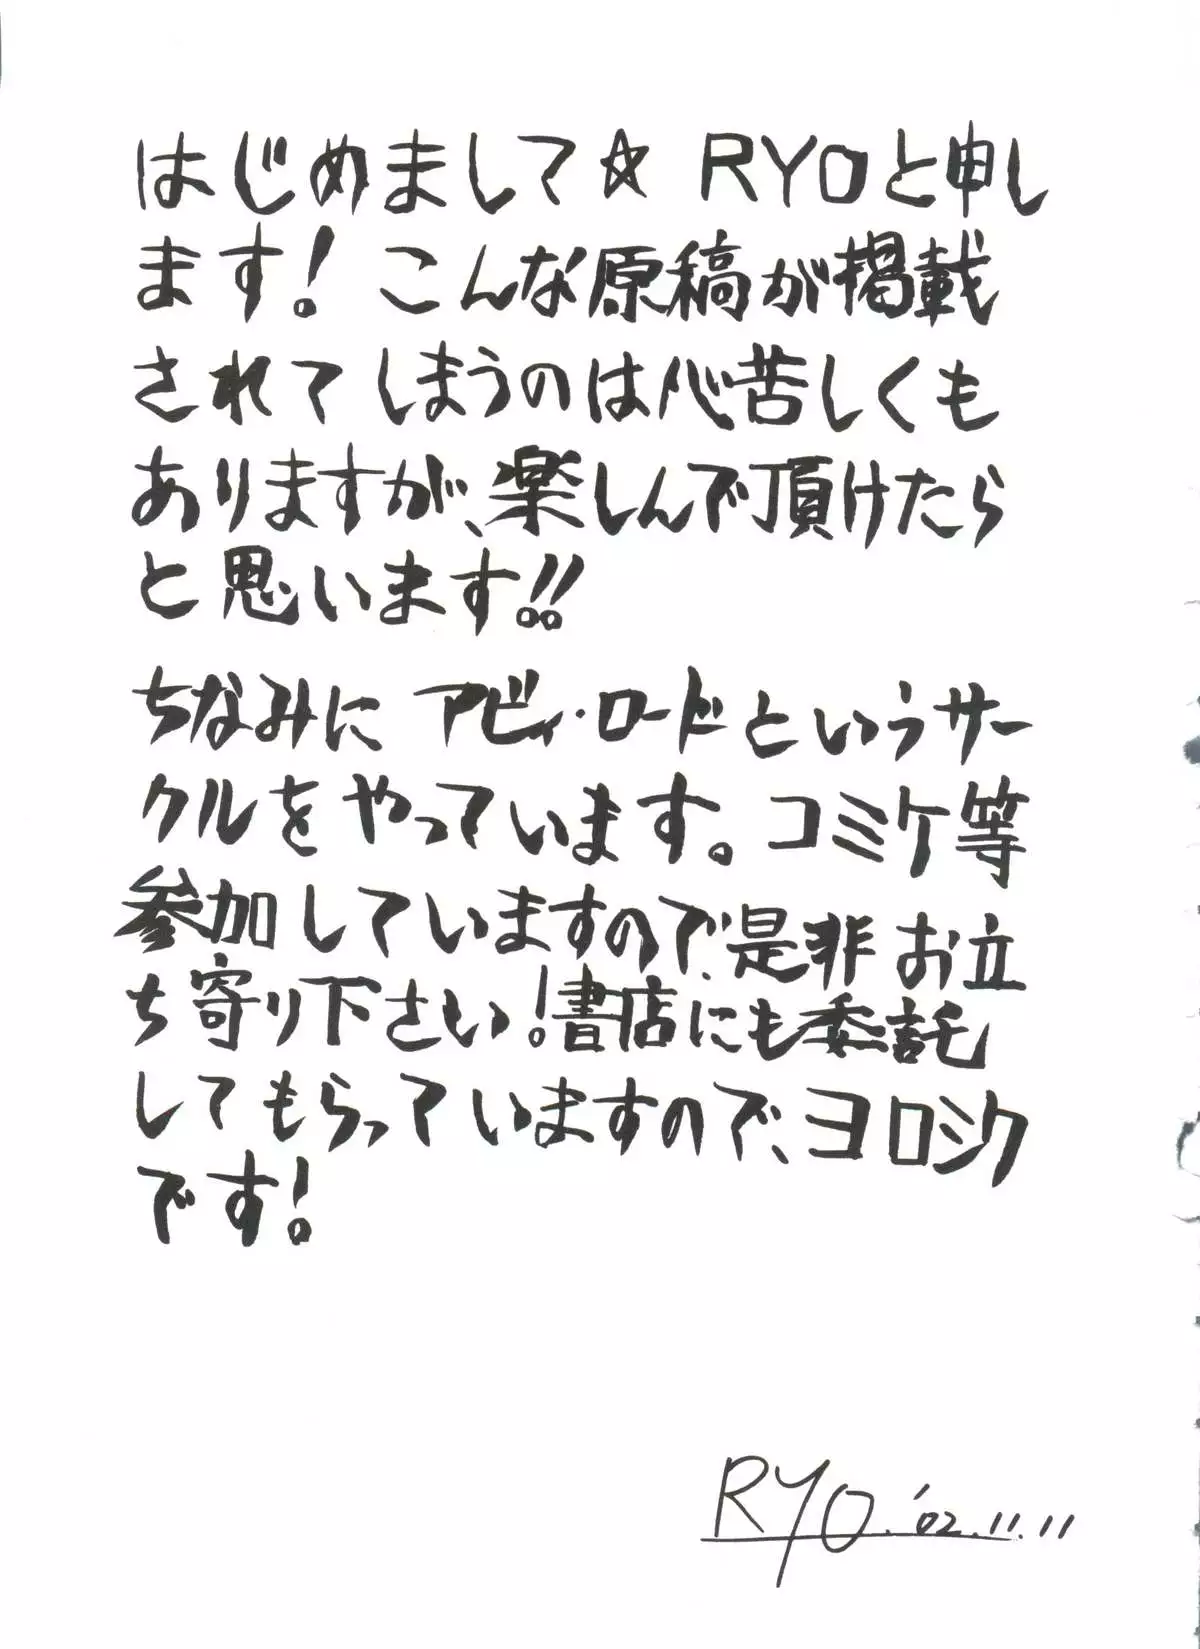 はじめまして☆ RYOと申し
ます! こんな原稿が掲載
されてしまうのは心苦しくも
ありますが、楽しんで頂けたら
と思います!!
ちなみに アビィ・ロードというサー
クルをやっています。コミケ等
参加していますので、是非お立
ち寄り下さい!書店にも委託
してもらっていますので、ヨロシク
です!
RYO.'02.11.11